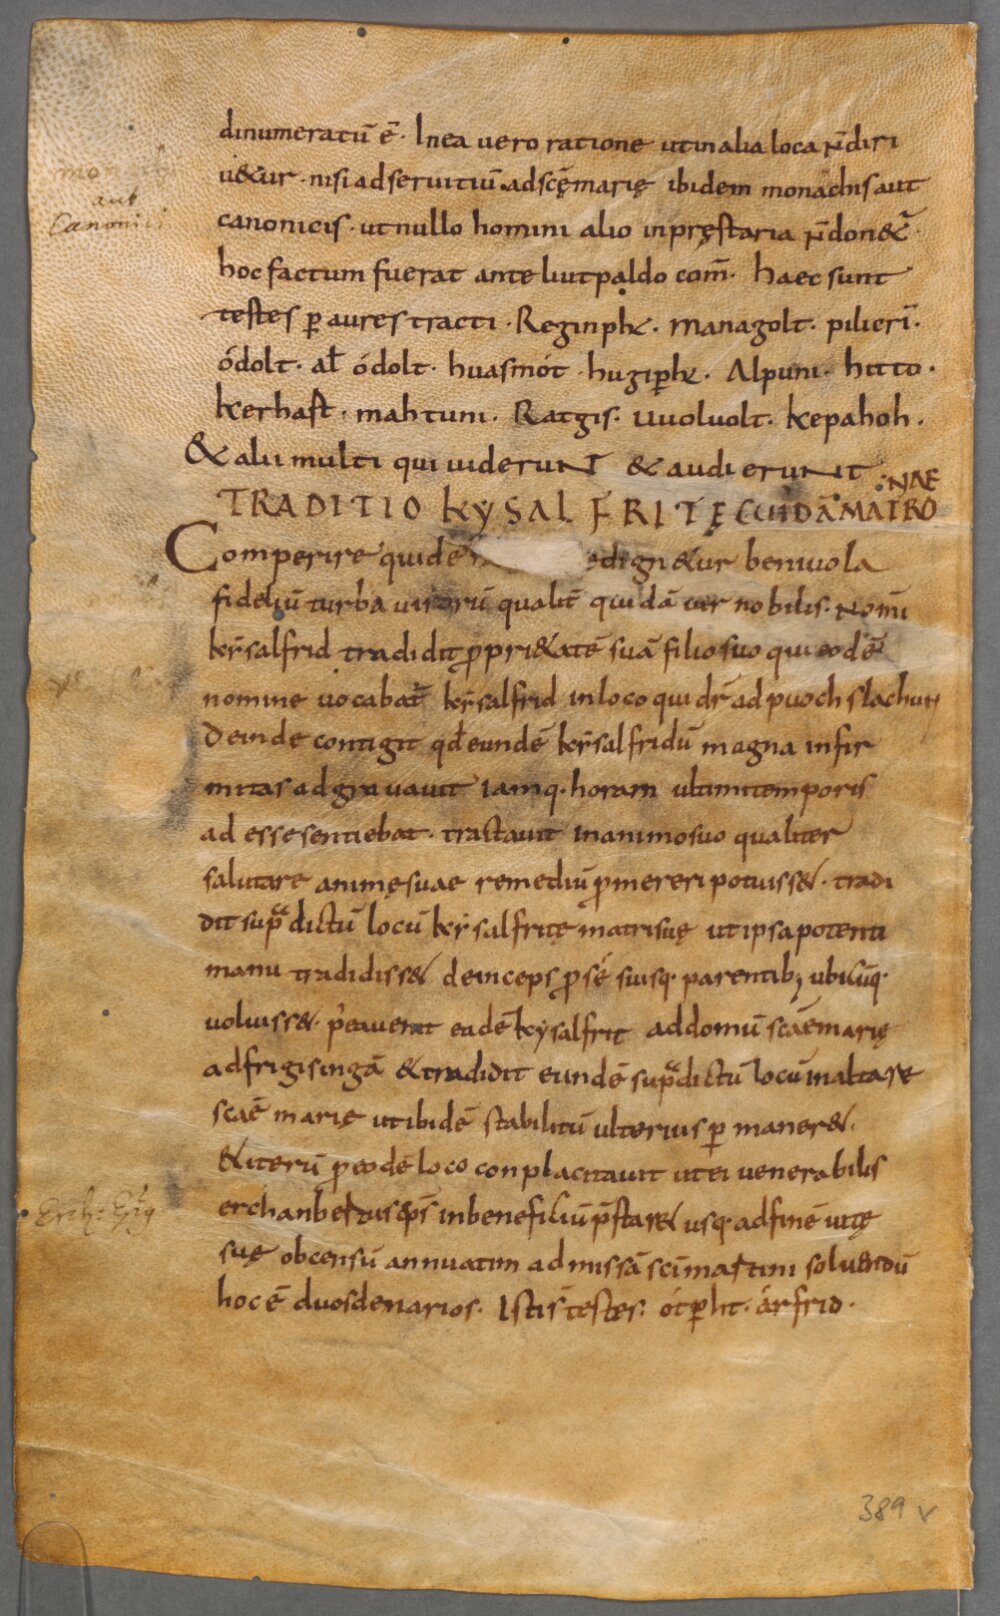 dinumeratū ē· In ea uero ratione ut in alia loca n̄ diri
u&ur· nisi ad seruitiū· ad scę marię ibidem monachis aut
canonicis· ut nullo homini alio in pręstaria n̄ don&ur·
hoc factum fuerat ante liutpaldo com̄· haec sunt
testes p̄ aures tracti· Reginpht· managolt· pilieri·
ódolt· al ódolt· huasmót· hugipht· Alpuni· hitto·
kerhaft· mahtuni· Ratgis· uuoluolt· kepahoh·
& alii multi qui uiderunt & audierunt
NAE
TRADITIO KYSALFRITĘ CUIDĀ MATRO
Comperire quide edign&ur beniuola
fideliū turba uirorū qualit̄ quidā uir nobilis· Nomı̄
kẏsalfrid tradidit ꝓpri&atē suā filio suo qui eodē
nomine uocabat̄ kẏsalfrid in loco qui dr̄ ad puochslachun
Deinde contigit qd̄ eundē kẏsalfridū magna infir
mitas adgrauauit iamq· horam ultimi temporis
adesse sentiebat· tractauit in animo suo qualiter
salutare animę suae remediū ꝓmereri potuiss&· tradi
dit sup̄dictū locū kẏsalfritę matri suę ut ipsa potenti
manu tradidiss& deinceps ꝓ sé suisq· parentib; ubicūq·
uoluiss&· eadē kysalfrit ad domū scāe marię
ad frigisingā & tradidit eundē sup̄dictū locū in altare
scāe marię ut ibidē stabilitū ulterius ꝑmaner&·
& iterū ꝓ eodē loco conplacitauit ut ei uenerabilis
erchanbertus ep̄s in beneficiū p̄star& usq· ad finē uitę
suę ob censū annuatim ad missā sc̄i martini soluendū
hoc ē duos denarios· Isti s̄ testes: ótpht· árfrid·
aut
Canonici
389 v